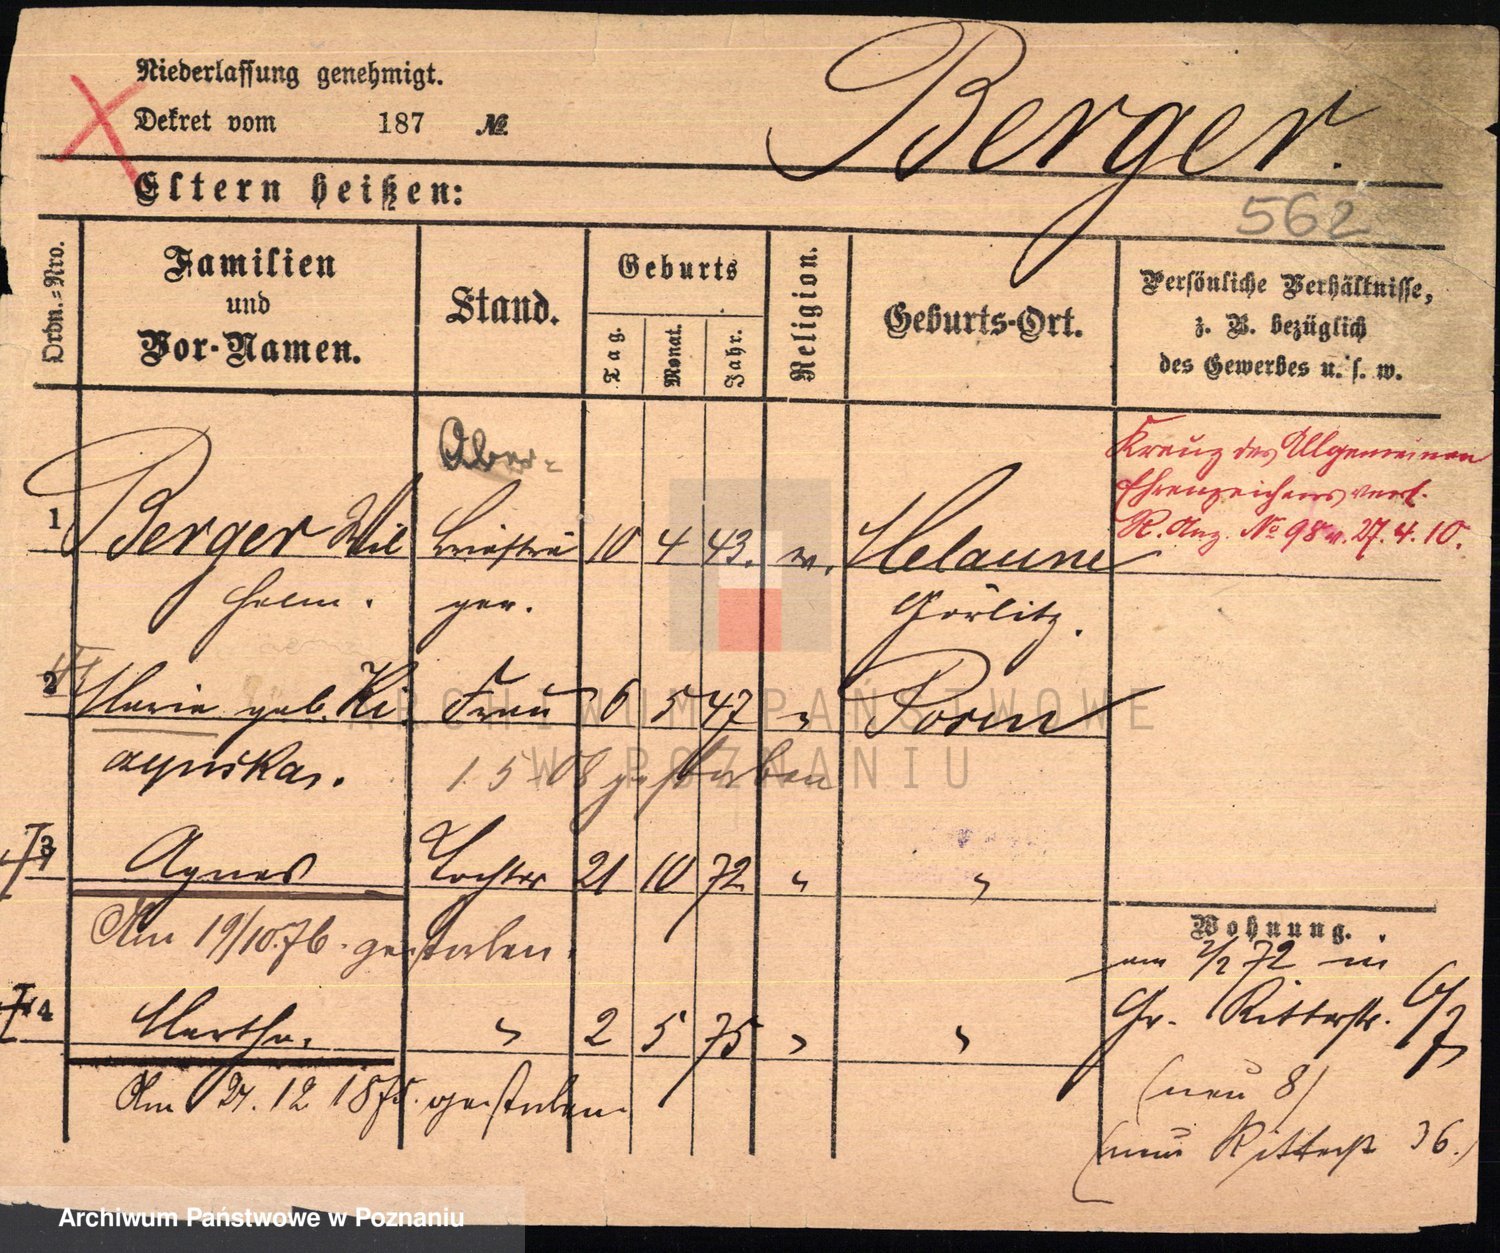 Niederlassung genehmigt.
Dekret vom 187 №
Berger.
Eltern heißen:
562
Ordn.=Nro.
Familien
und
Vor-Namen.
Stand.
Geburts
Tag.
Monat.
Jahr.
Religion.
Geburts-Ort.
Persönliche Verhältnisse,
z. B. bezüglich
des Gewerbes u. s. w.
Kreuz des Allgemeinen
Ehrenzeichens verl.
R. Anz. No 98 v. 27.4.10.
Ober-
1 Berger Wil Briefträ 10 4 43.
helm. ger. Görlitz.
2 Marie geb. Ki Frau 6 5 47 " Posen
1 5 08 gestorben
3 Agnes Tochter 21 10 72 " "
Am 19/10.76. gestorben.
4 Martha. " 2 5 75 " "
Am 27.12 1875. gestorben
Wohnung.
am 2/2 72 in
Gr. Ritterstr. 6/7
(neu 8)
(neu Ritterstr 36.)
ARCHIWUM PAŃSTWOWE
W POZNANIU
Archiwum Państwowe w Poznaniu